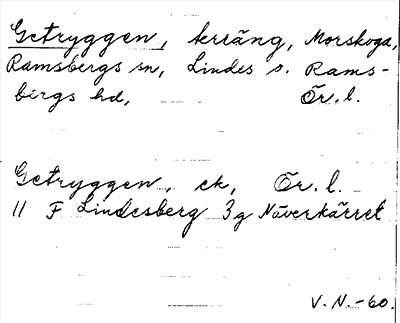 Getryggen, terräng, Morskoga,
Ramsbergs sn, Lindes o. Rams-
bergs hd, Ör. l.
Getryggen, ek, Ör. l.
11 F Lindesberg 3g Näverkärret
V. N. -60.